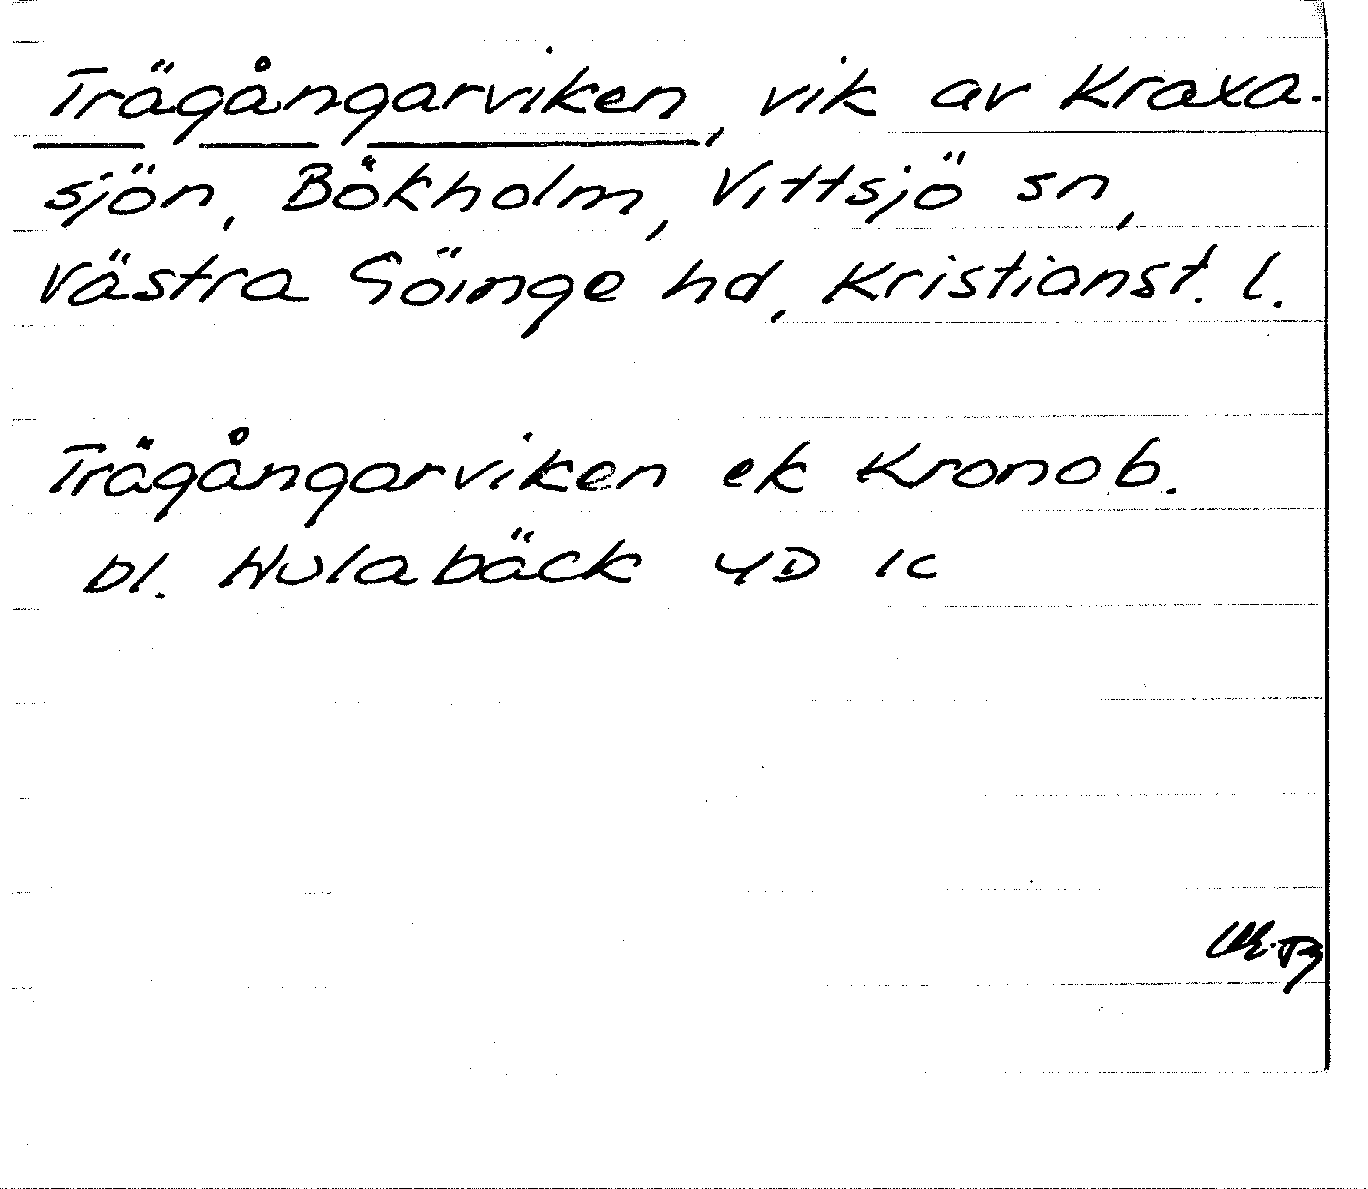 Trägångarviken, vik av Kraxa-
sjön, Bökholm, Vittsjö sn,
Västra Göinge hd, Kristianst. l.
Trägångarviken ek Kronob.
bl. Hulabäck 4D 1c